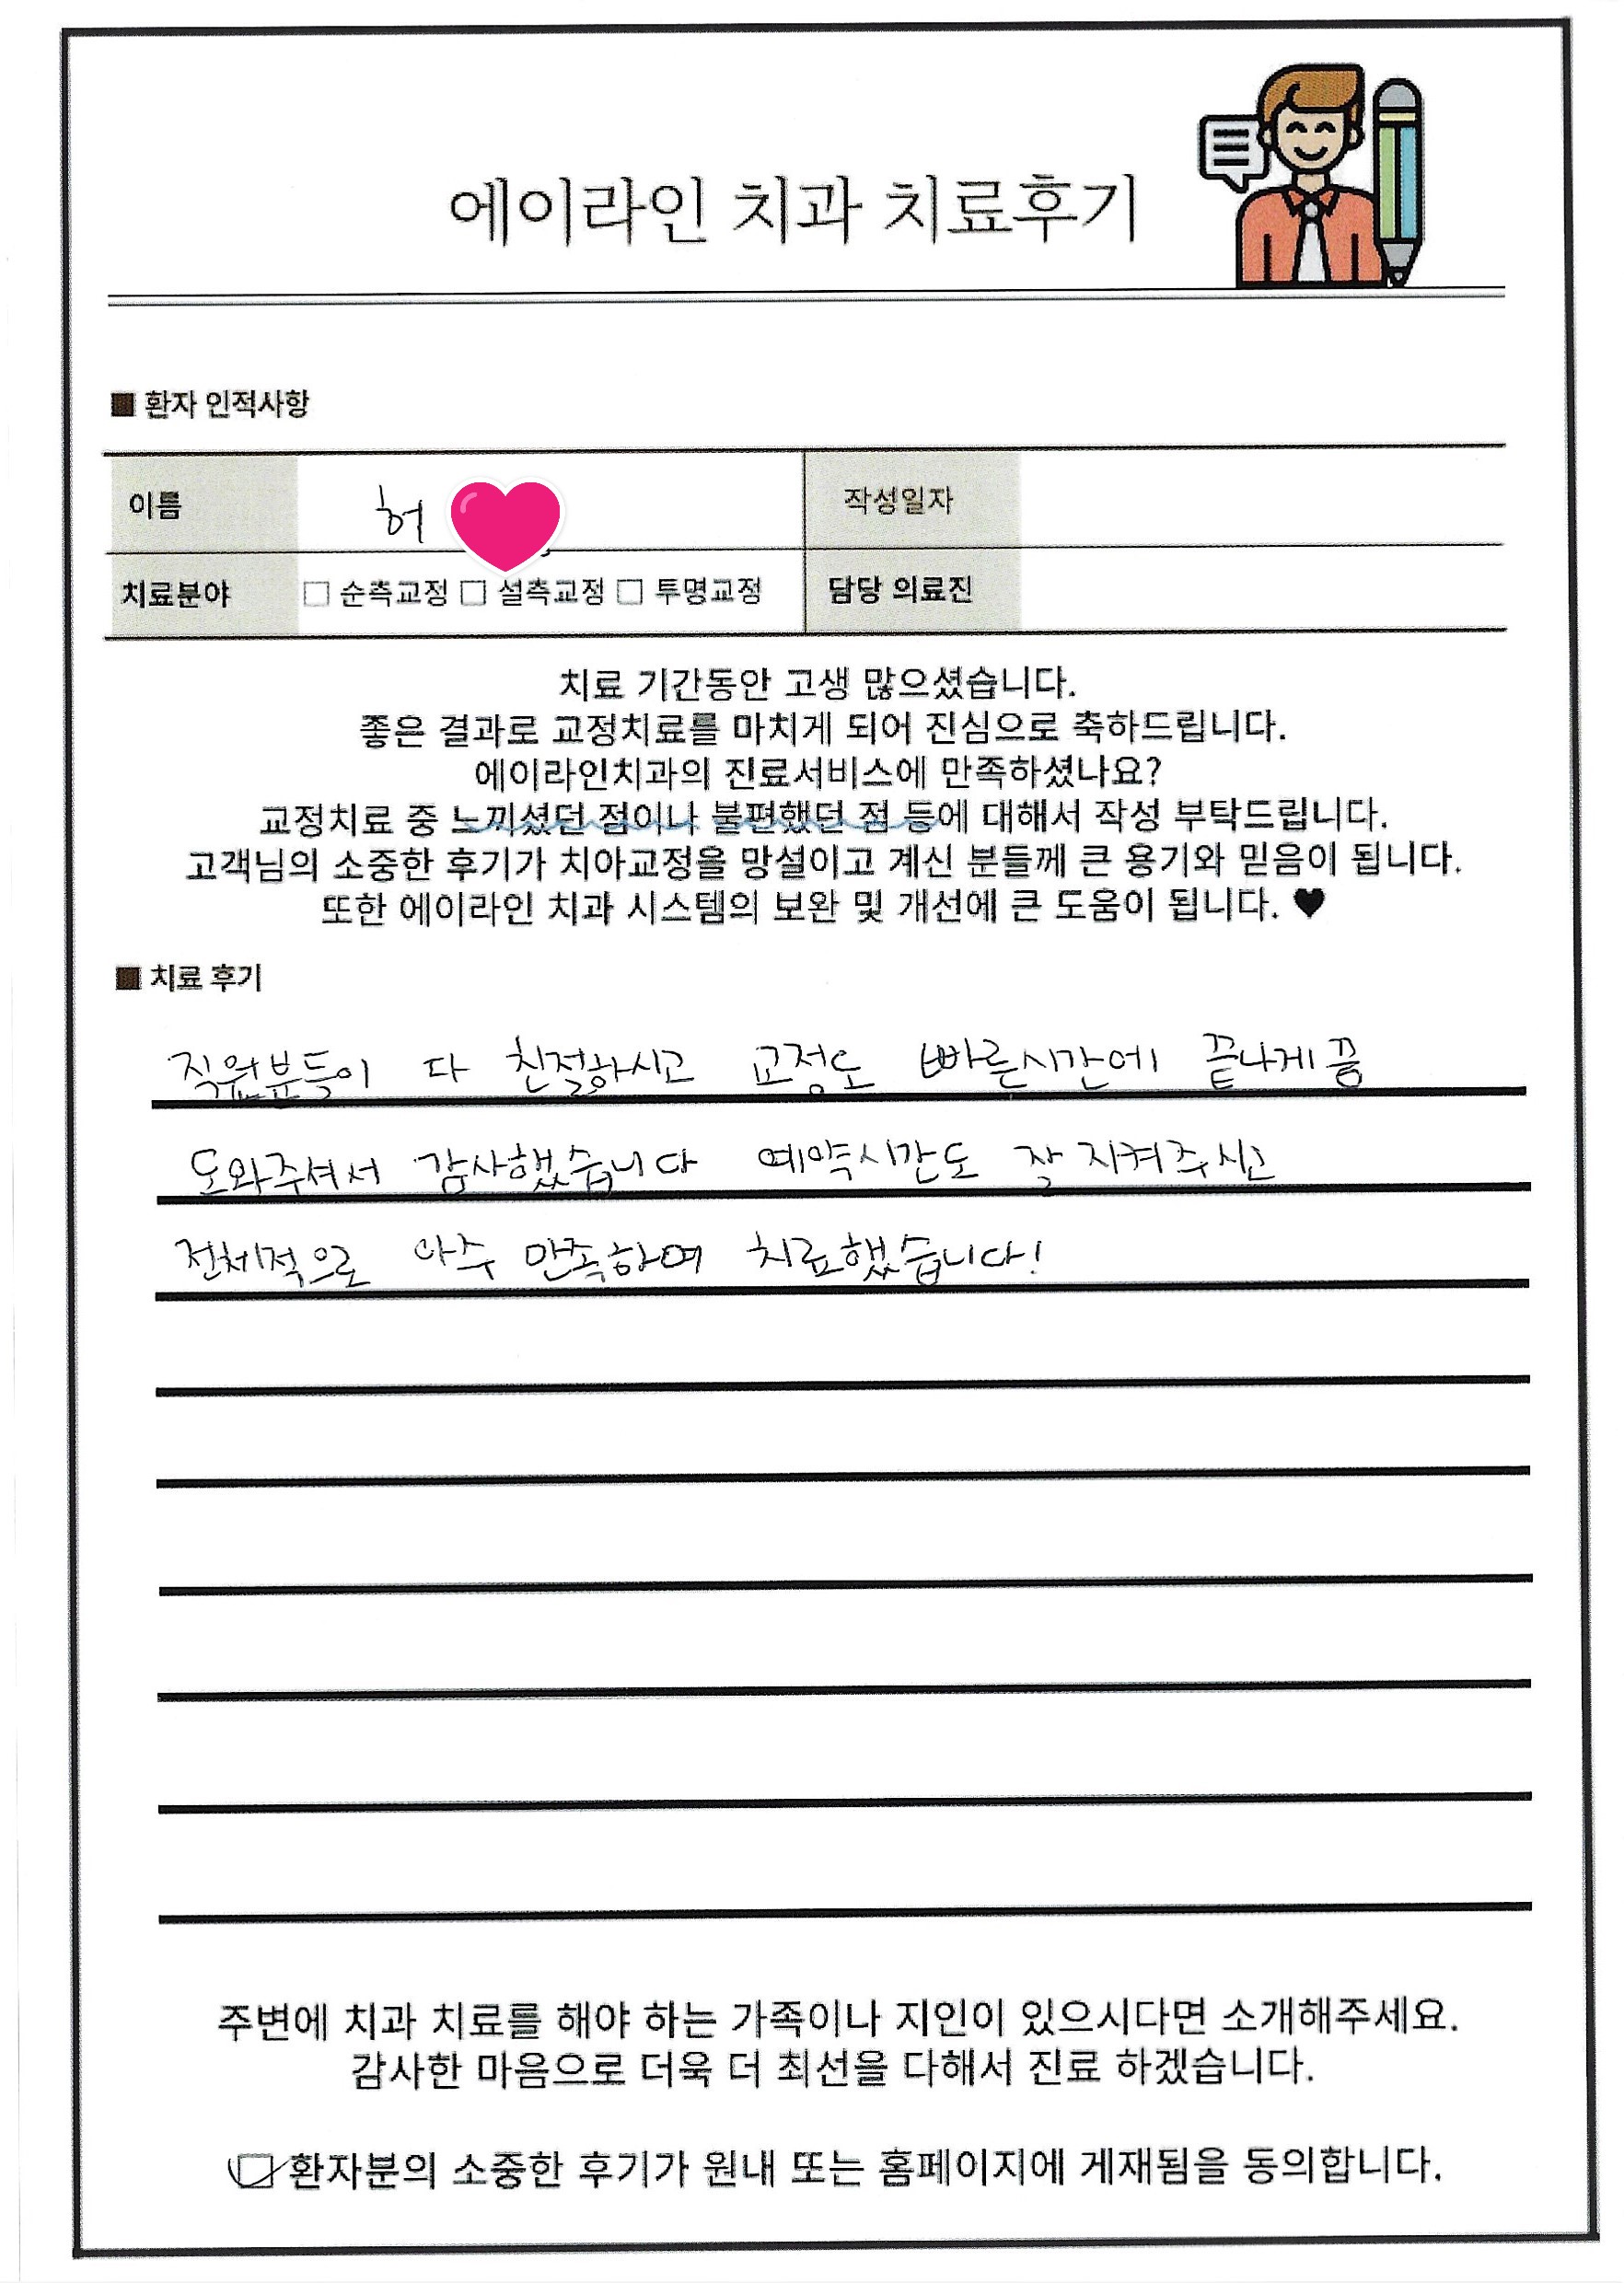 에이라인 치과 치료후기
■ 환자 인적사항
이름 허 작성일자
치료분야 □ 순측교정 □ 설측교정 □ 투명교정 담당 의료진
치료 기간동안 고생 많으셨습니다.
좋은 결과로 교정치료를 마치게 되어 진심으로 축하드립니다.
에이라인치과의 진료서비스에 만족하셨나요?
교정치료 중 느끼셨던 점이나 불편했던 점 등에 대해서 작성 부탁드립니다.
고객님의 소중한 후기가 치아교정을 망설이고 계신 분들께 큰 용기와 믿음이 됩니다.
또한 에이라인 치과 시스템의 보완 및 개선에 큰 도움이 됩니다. ♥
■ 치료 후기
직원분들이 다 친절하시고 교정도 빠른시간에 끝나게끔
도와주셔서 감사했습니다 예약시간도 잘 지켜주시고
전체적으로 아주 만족하며 치료했습니다!
주변에 치과 치료를 해야 하는 가족이나 지인이 있으시다면 소개해주세요.
감사한 마음으로 더욱 더 최선을 다해서 진료 하겠습니다.
환자분의 소중한 후기가 원내 또는 홈페이지에 게재됨을 동의합니다.